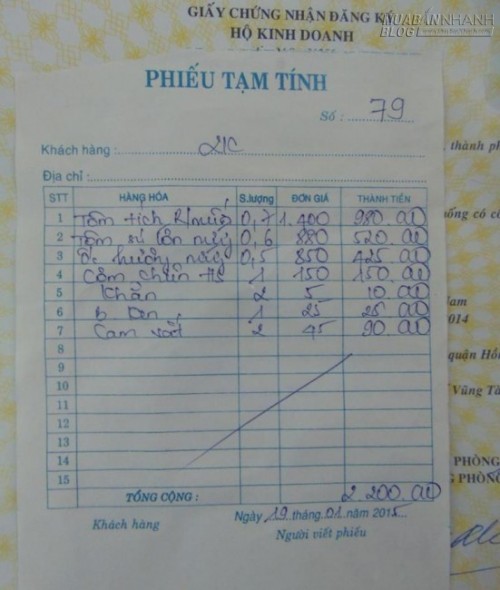 GIẤY CHỨNG NHẬN ĐĂNG KÝ
HỘ KINH DOANH
MUABANNHANH
BLOG
PHIẾU TẠM TÍNH
Số : 79
, thành ph
Khách hàng : 21C
Địa chỉ :
STT HÀNG HÓA S.lượng ĐƠN GIÁ THÀNH TIỀN
1 Tôm tích R muối 0,7 1.400 980.000
2 Tôm sú lớn nướng 0,6 880 520.000
3 Ốc hương nướng 0,5 850 425.000
4 Cơm chiên HS 1 150 150.000
5 Khăn 2 5 10.000
6 1 25 25.000
7 Cam vắt 2 45 90.000
8
9
10
11
12
13
14
15
TỔNG CỘNG : 2.200.000
Ngày 19 tháng 01 năm 2015
Khách hàng Người viết phiếu
ống có c
Nam
014
quận Hồ
Vũng Tà
PHÒNG
G PHÒN